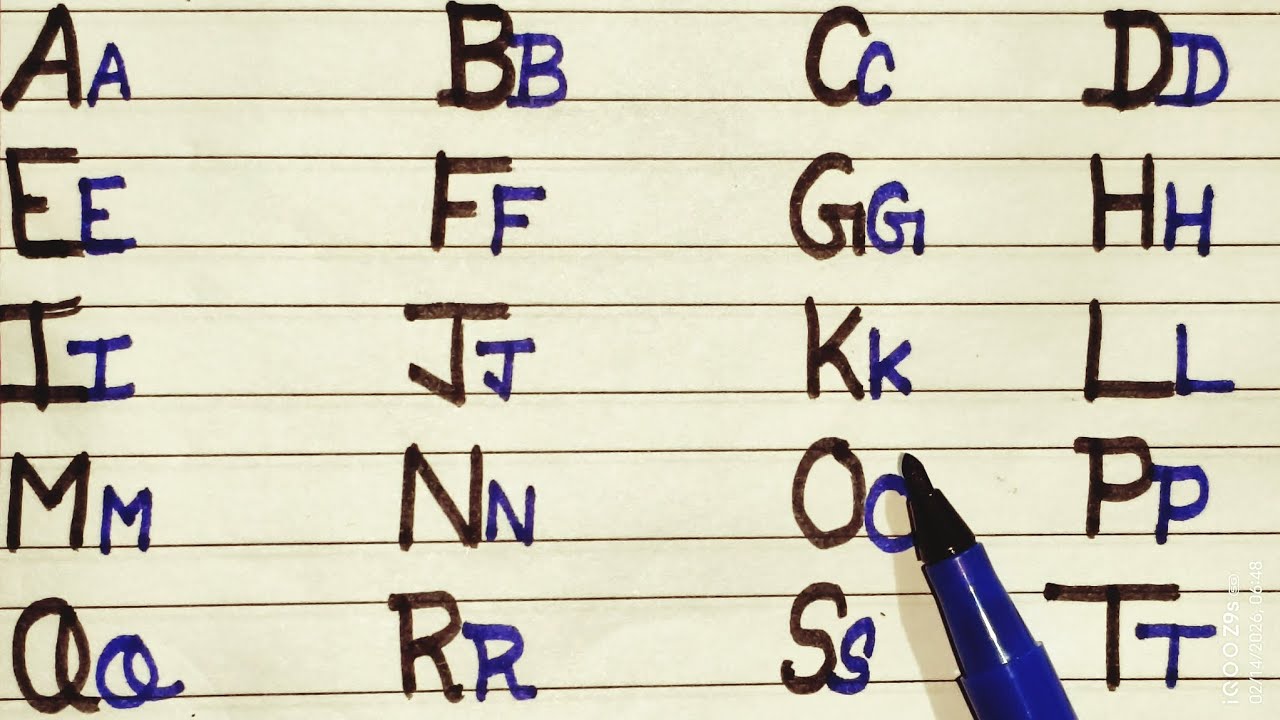 AA BB CC DD
EE FF GG HH
II JJ KK LL
MM NN OO PP
QQ RR SS TT
iQOO Z9s 5G
02/14/2026, 06:48